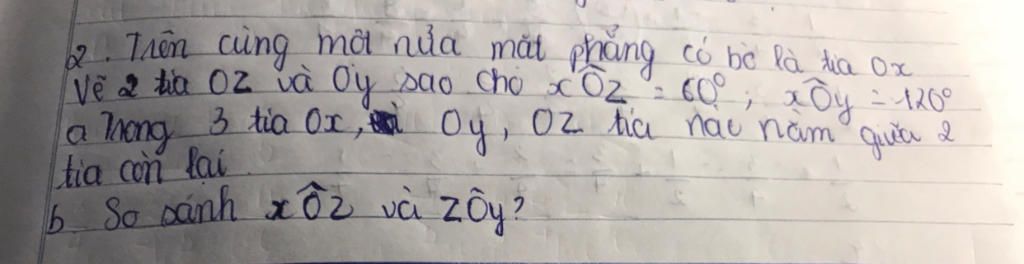 2. Trên cùng một nửa mặt phẳng có bờ là tia Ox
Vẽ 2 tia OZ và Oy sao cho xÔz = 60°; xÔy = 120°
a Trong 3 tia Ox, Oy, OZ tia nào nằm giữa 2
tia còn lại
b So sánh xÔz và zÔy?